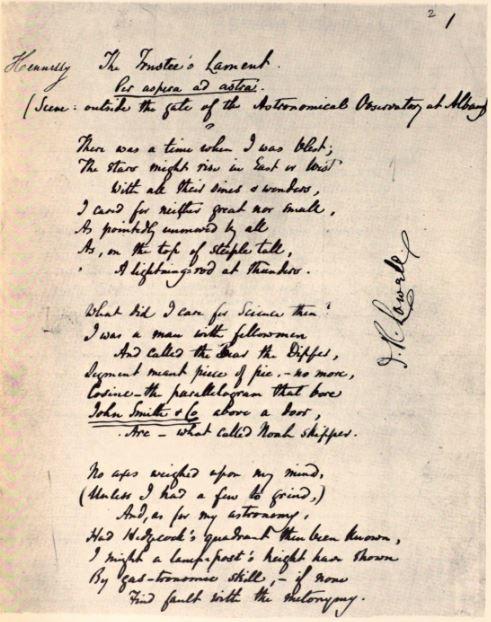 2 1
Hennessy The Trustee's Lament.
Per aspera ad astra.
(Scene: outside the gate of the Astronomical Observatory at Albany
There was a time when I was blest;
The stars might rise in East or West
With all their sines & wonders,
I cared for neither great nor small,
As pointedly unmoved by all
As, on the top of steeple tall,
A lightning-rod at thunders.
What did I care for Science then?
I was a man with fellowmen
And called the Bear the Dipper,
Segment meant piece of pie, - no more,
Cosine - the parallelogram that bore
John Smith & Co above a door,
Arc - what called Noah skipper.
No axes weighed upon my mind,
(Unless I had a few to grind,)
And, as for my astronomy,
Had Hedgcock's quadrant then been known,
I might a lamp-post's height have shown
By gas-tronomic skill, - if none
Find fault with the metonymy.
J. R. Lowell